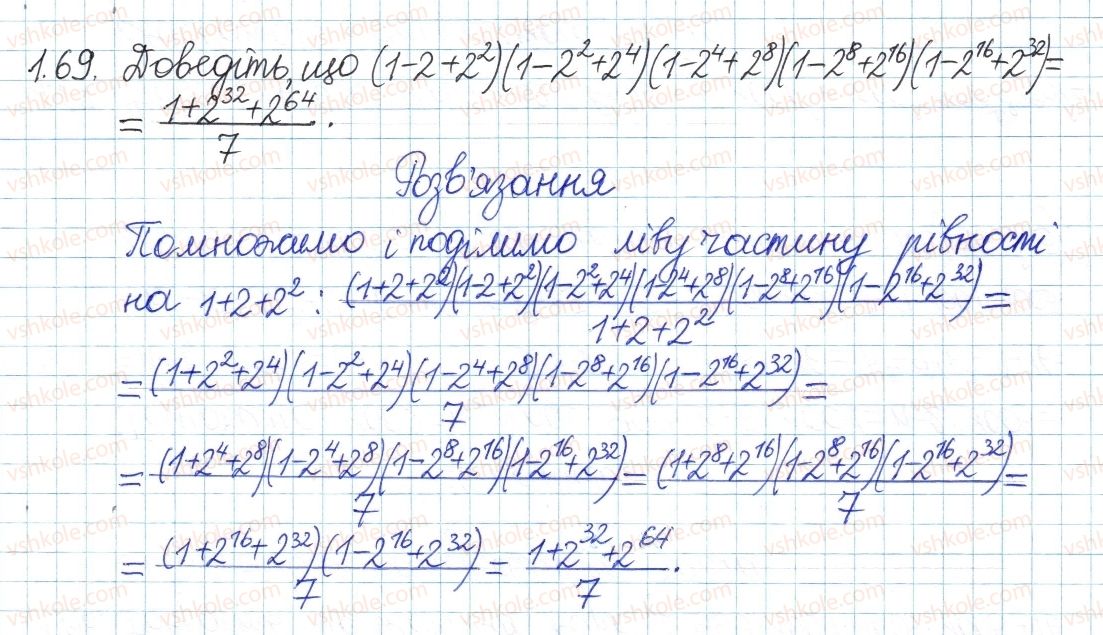 1.69. Доведіть, що (1-2+2²)(1-2²+2⁴)(1-2⁴+2⁸)(1-2⁸+2¹⁶)(1-2¹⁶+2³²)=
= (1+2³²+2⁶⁴)/7.
Розв'язання
Помножимо і поділимо ліву частину рівності
на 1+2+2² : (1+2+2²)(1-2+2²)(1-2²+2⁴)(1-2⁴+2⁸)(1-2⁸+2¹⁶)(1-2¹⁶+2³²)/1+2+2² =
= (1+2²+2⁴)(1-2²+2⁴)(1-2⁴+2⁸)(1-2⁸+2¹⁶)(1-2¹⁶+2³²)/7 =
= (1+2⁴+2⁸)(1-2⁴+2⁸)(1-2⁸+2¹⁶)(1-2¹⁶+2³²)/7 = (1+2⁸+2¹⁶)(1-2⁸+2¹⁶)(1-2¹⁶+2³²)/7 =
= (1+2¹⁶+2³²)(1-2¹⁶+2³²)/7 = 1+2³²+2⁶⁴/7.